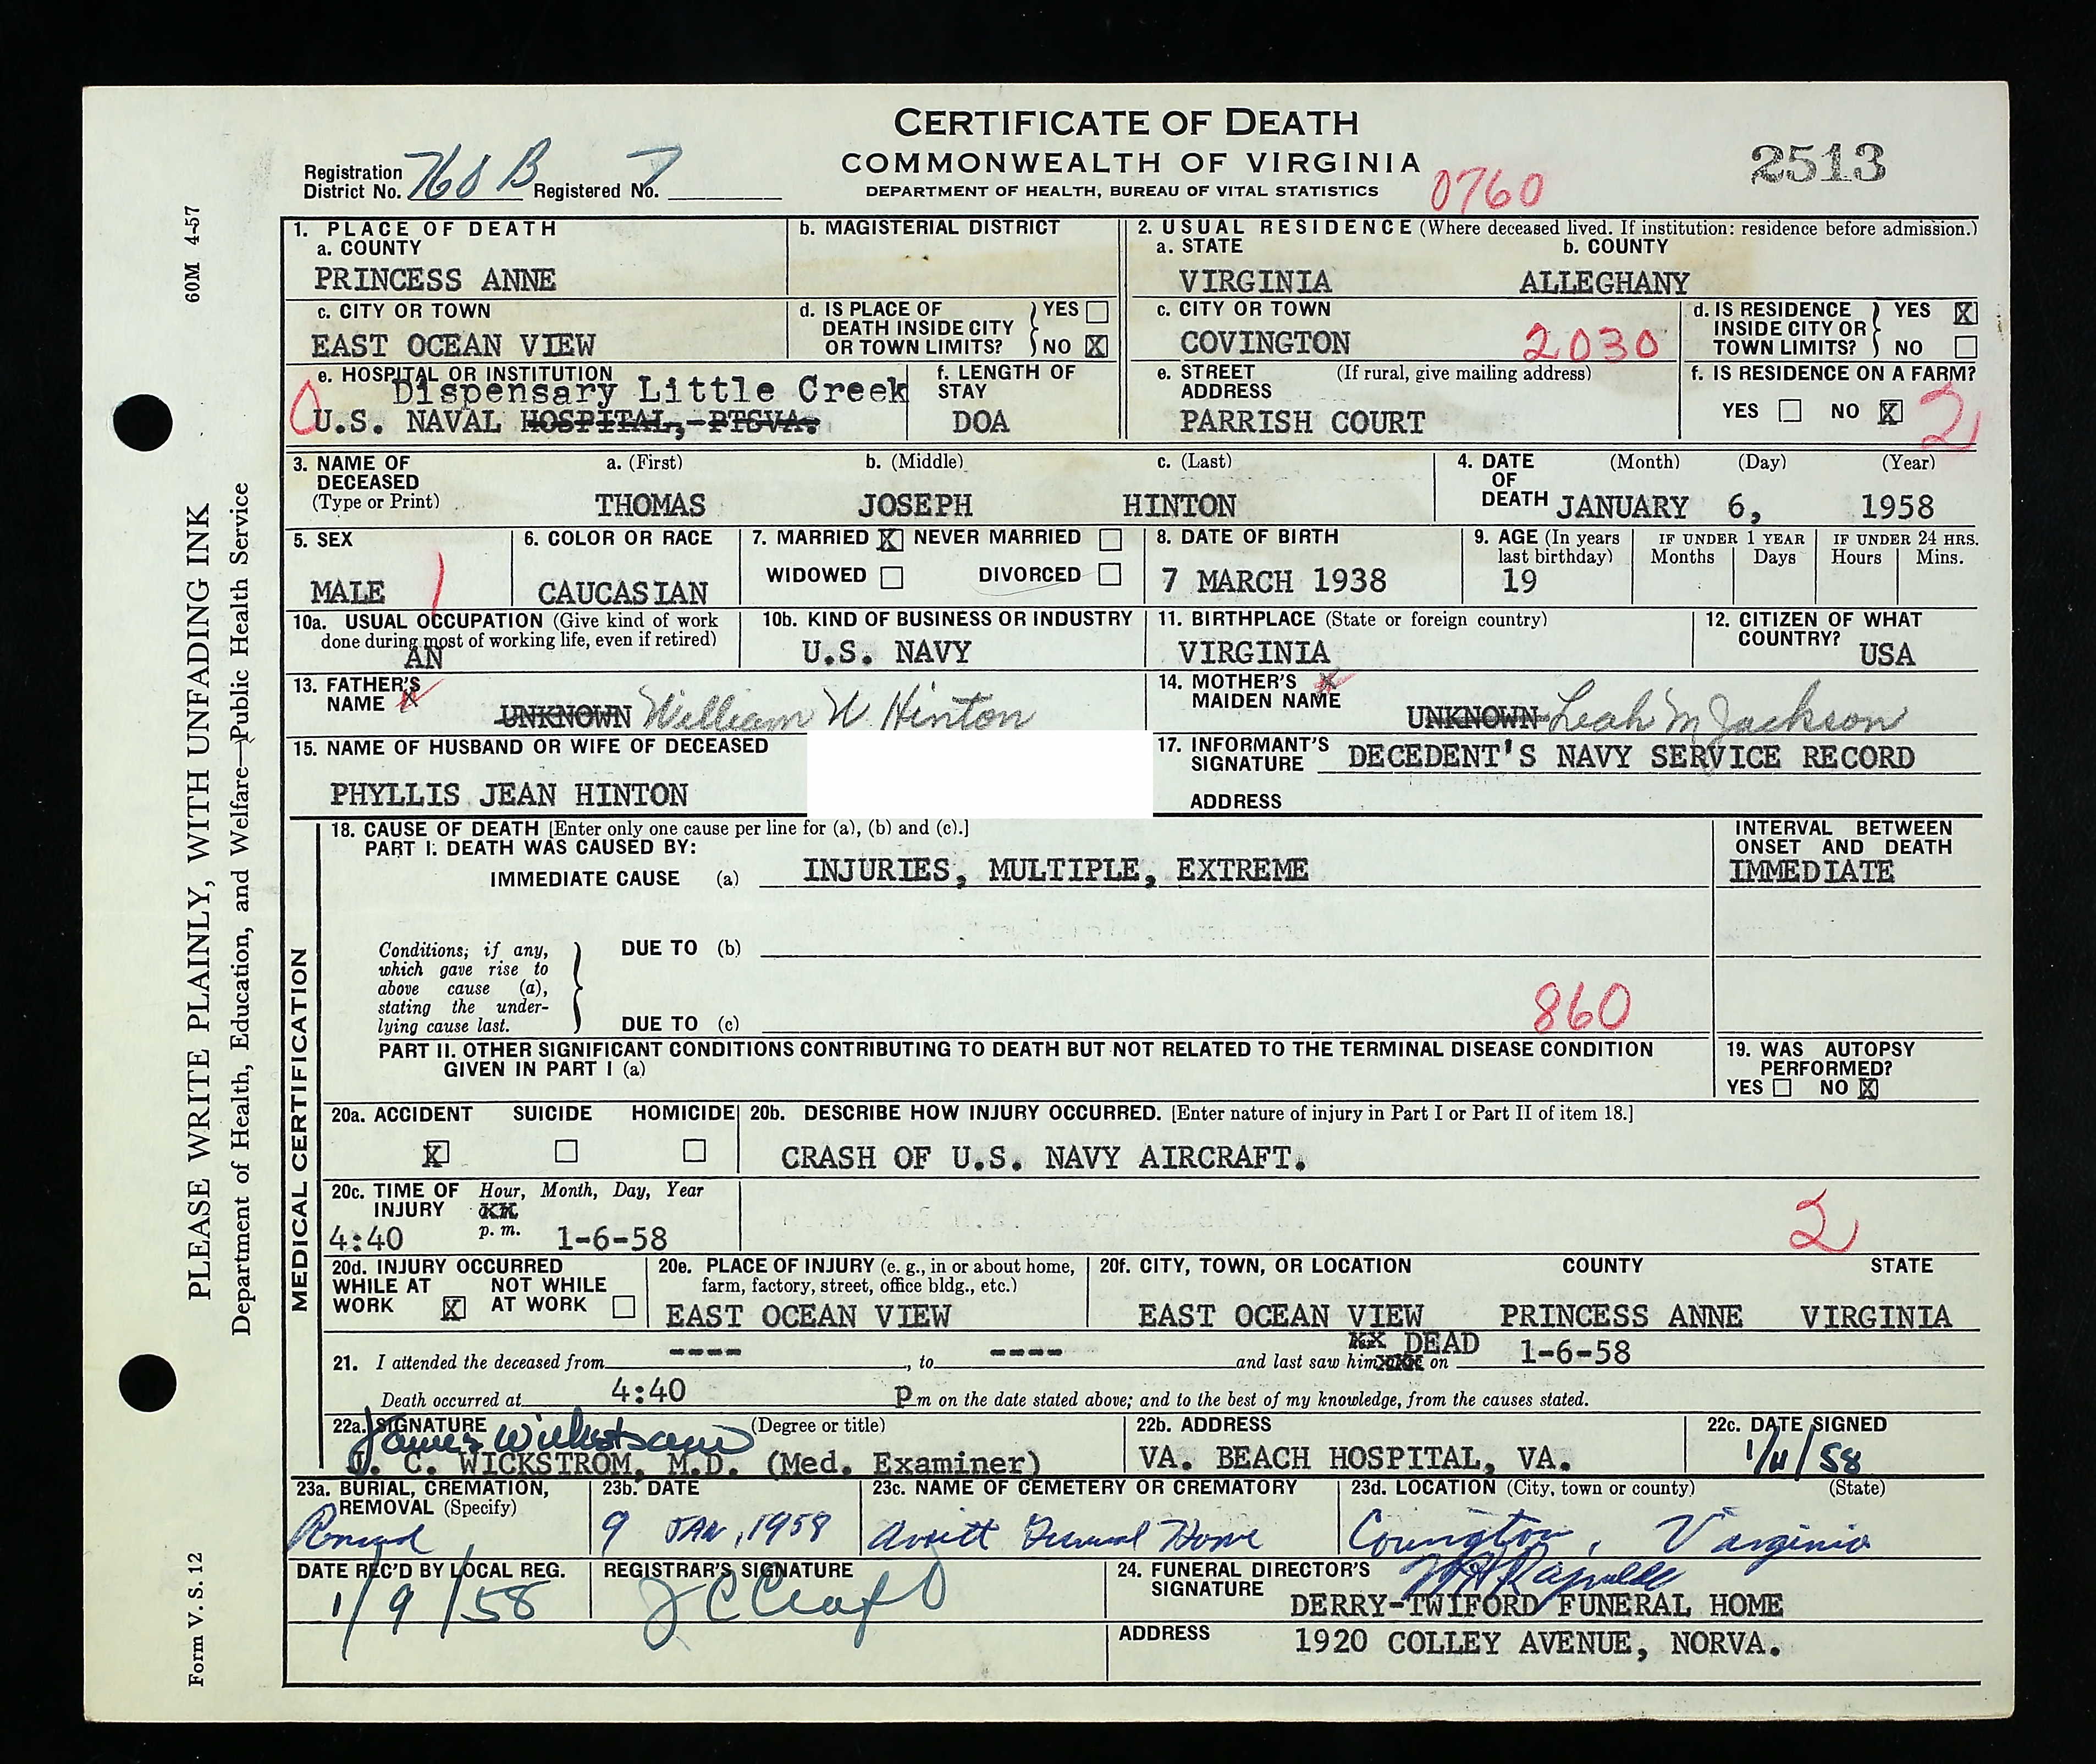 CERTIFICATE OF DEATH
COMMONWEALTH OF VIRGINIA
DEPARTMENT OF HEALTH, BUREAU OF VITAL STATISTICS
Registration District No. 760 B Registered No. 7
0760
2513
60M 4-57
PLEASE WRITE PLAINLY, WITH UNFADING INK
Department of Health, Education, and Welfare—Public Health Service
Form V. S. 12
1. PLACE OF DEATH
a. COUNTY
PRINCESS ANNE
b. MAGISTERIAL DISTRICT
2. USUAL RESIDENCE (Where deceased lived. If institution: residence before admission.)
a. STATE b. COUNTY
VIRGINIA ALLEGHANY
c. CITY OR TOWN
EAST OCEAN VIEW
d. IS PLACE OF DEATH INSIDE CITY OR TOWN LIMITS? YES NO X
c. CITY OR TOWN
COVINGTON 2030
d. IS RESIDENCE INSIDE CITY OR TOWN LIMITS? YES X NO
e. HOSPITAL OR INSTITUTION
Dispensary Little Creek
U.S. NAVAL HOSPITAL, PTSVA.
f. LENGTH OF STAY
DOA
e. STREET ADDRESS (If rural, give mailing address)
PARRISH COURT
f. IS RESIDENCE ON A FARM?
YES NO X 2
3. NAME OF DECEASED (Type or Print)
a. (First) b. (Middle) c. (Last)
THOMAS JOSEPH HINTON
4. DATE OF DEATH (Month) (Day) (Year)
JANUARY 6, 1958
5. SEX
MALE 1
6. COLOR OR RACE
CAUCASIAN
7. MARRIED X NEVER MARRIED
WIDOWED DIVORCED
8. DATE OF BIRTH
7 MARCH 1938
9. AGE (In years last birthday)
19
IF UNDER 1 YEAR Months Days
IF UNDER 24 HRS. Hours Mins.
10a. USUAL OCCUPATION (Give kind of work done during most of working life, even if retired)
AN
10b. KIND OF BUSINESS OR INDUSTRY
U.S. NAVY
11. BIRTHPLACE (State or foreign country)
VIRGINIA
12. CITIZEN OF WHAT COUNTRY?
USA
13. FATHER'S NAME
UNKNOWN William W Hinton
14. MOTHER'S MAIDEN NAME
UNKNOWN Leah M Jackson
15. NAME OF HUSBAND OR WIFE OF DECEASED
PHYLLIS JEAN HINTON
17. INFORMANT'S SIGNATURE DECEDENT'S NAVY SERVICE RECORD
ADDRESS
MEDICAL CERTIFICATION
18. CAUSE OF DEATH [Enter only one cause per line for (a), (b) and (c).]
PART I. DEATH WAS CAUSED BY:
IMMEDIATE CAUSE (a) INJURIES, MULTIPLE, EXTREME
INTERVAL BETWEEN ONSET AND DEATH
IMMEDIATE
Conditions, if any, which gave rise to above cause (a), stating the underlying cause last.
DUE TO (b)
DUE TO (c)
860
PART II. OTHER SIGNIFICANT CONDITIONS CONTRIBUTING TO DEATH BUT NOT RELATED TO THE TERMINAL DISEASE CONDITION GIVEN IN PART I (a)
19. WAS AUTOPSY PERFORMED?
YES NO X
20a. ACCIDENT SUICIDE HOMICIDE
X
20b. DESCRIBE HOW INJURY OCCURRED. [Enter nature of injury in Part I or Part II of item 18.]
CRASH OF U.S. NAVY AIRCRAFT.
20c. TIME OF INJURY Hour, Month, Day, Year
4:40 p. m. 1-6-58
2
20d. INJURY OCCURRED
WHILE AT WORK X NOT WHILE AT WORK
20e. PLACE OF INJURY (e. g., in or about home, farm, factory, street, office bldg., etc.)
EAST OCEAN VIEW
20f. CITY, TOWN, OR LOCATION COUNTY STATE
EAST OCEAN VIEW PRINCESS ANNE VIRGINIA
21. I attended the deceased from ----, to ---- and last saw him XX DEAD on 1-6-58
Death occurred at 4:40 P m on the date stated above; and to the best of my knowledge, from the causes stated.
22a. SIGNATURE (Degree or title)
James Wickstrom
J. C. WICKSTROM, M.D. (Med. Examiner)
22b. ADDRESS
VA. BEACH HOSPITAL, VA.
22c. DATE SIGNED
1/11/58
23a. BURIAL, CREMATION, REMOVAL (Specify)
23b. DATE
9 JAN, 1958
23c. NAME OF CEMETERY OR CREMATORY
Funeral Home
23d. LOCATION (City, town or county) (State)
Covington, Virginia
DATE REC'D BY LOCAL REG.
1/9/58
REGISTRAR'S SIGNATURE
24. FUNERAL DIRECTOR'S SIGNATURE
DERRY-TWIFORD FUNERAL HOME
ADDRESS 1920 COLLEY AVENUE, NORVA.